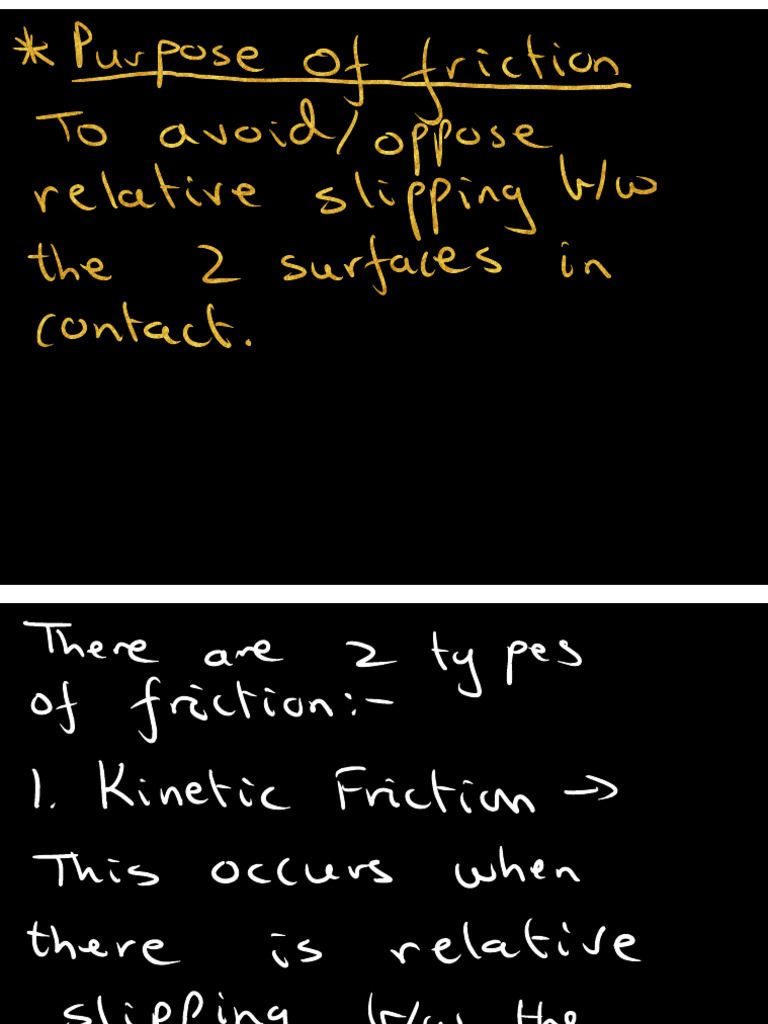 * Purpose of friction
To avoid/oppose
relative slipping b/w
the 2 surfaces in
contact.
There are 2 types
of friction:-
1. Kinetic Friction →
This occurs when
there is relative
slipping b/w the